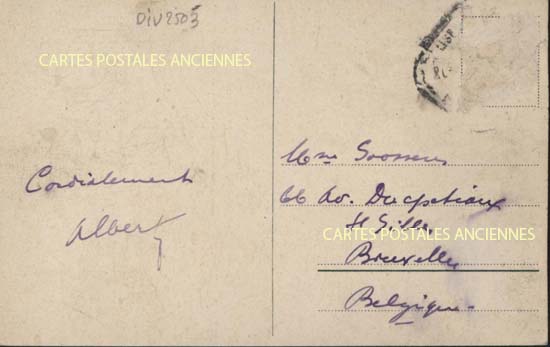 DIV2503
CARTES POSTALES ANCIENNES
Cordialement
Albert
Mme Goossens
66 Av. Ducpétiaux
St Gilles
CARTES POSTALES ANCIENNES
Bruxelles
Belgique